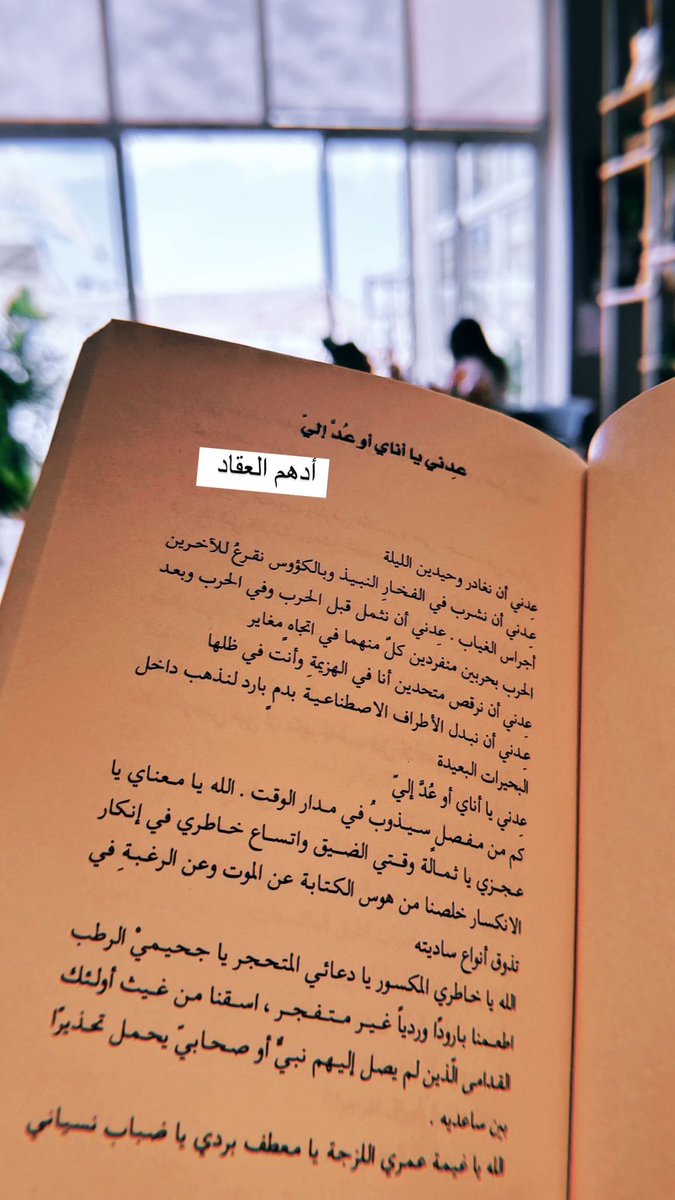 عِدني يا أناي أو عُدَّ إليّ
أدهم العقاد
عِدني أن نغادر وحيدين الليلة
عِدني أن نشرب في الفخارِ النبيذ وبالكؤوس نقرعُ للآخرين
أجراس الغياب . عِدني أن نثمل قبل الحرب وفي الحرب وبعد
الحرب بحربين منفردين كلٌ منهما في اتجاه مغاير
عِدني أن نرقص متحدين أنا في الهزيمةِ وأنتَ في ظلها
عِدني أن نبدل الأطراف الاصطناعية بدمٍ بارد لنذهب داخل
البحيرات البعيدة
عِدني يا أناي أو عُدَّ إليّ
كم من مفصلٍ سيذوبُ في مدار الوقت . الله يا معناي يا
عجزي يا ثمالة وقتي الضيق واتساع خاطري في إنكار
الانكسار خلصنا من هوس الكتابة عن الموت وعن الرغبةِ في
تذوق أنواع ساديته
الله يا خاطري المكسور يا دعائي المتحجر يا جحيميْ الرطب
اطعمنا بارودًا ورديًا غير متفجر ، اسقنا من غيث أولئك
القدامى الّذين لم يصل إليهم نبيٌّ أو صحابيّ يحمل تحذيرًا
بين ساعديه .
الله يا غيمة عمري اللزجة يا معطف بردي يا ضباب نسياني